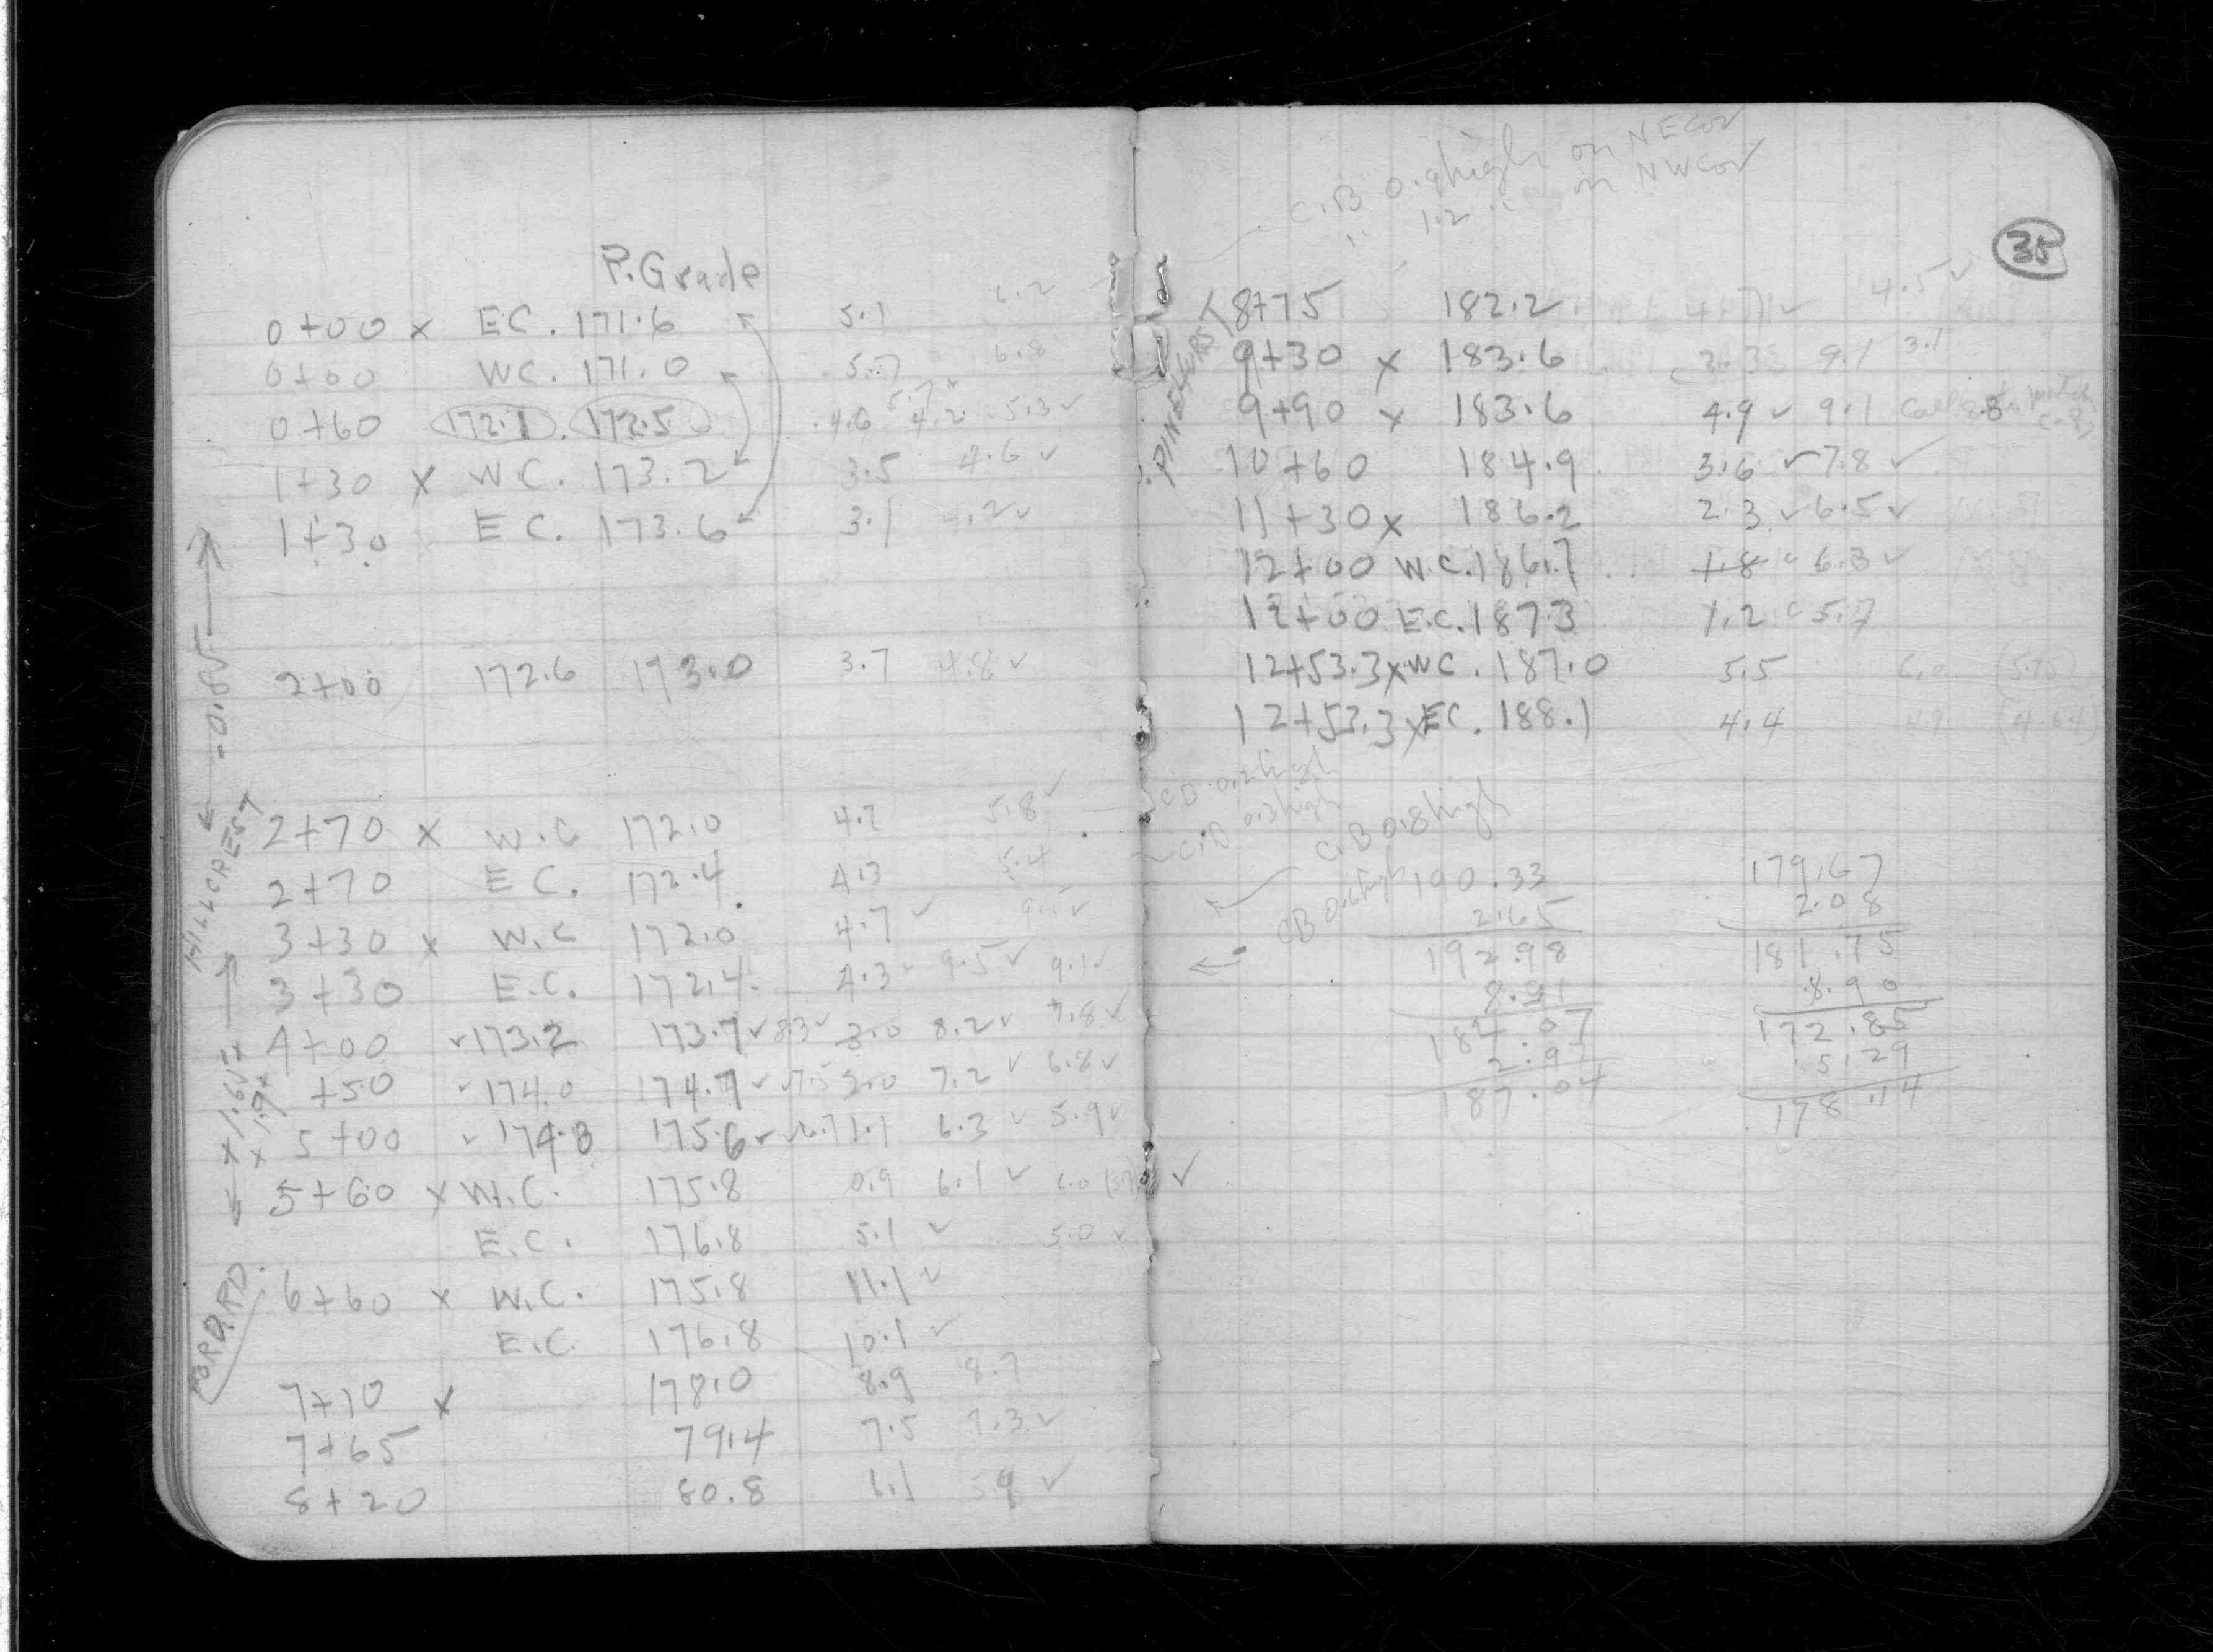 P. Grade
0+00 x E.C. 171.6 5.1 6.2
0+00 W.C. 171.0 5.7 6.8
0+60 172.1 172.5 4.6 4.2 5.3 ✓
1+30 x W.C. 173.2 3.5 4.6 ✓
1+30 E.C. 173.6 3.1 4.2 ✓
2+00 172.6 173.0 3.7 4.8 ✓
2+70 x W.C 172.0 4.7 5.8 ✓
2+70 E.C. 172.4 4.3 5.4
3+30 x W.C 172.0 4.7 ✓
3+30 E.C. 172.4 4.3 ✓ 9.5 ✓ 9.1 ✓
4+00 ✓ 173.2 173.7 ✓ 8.3 ✓ 3.0 8.2 ✓ 7.8 ✓
+50 ✓ 174.0 174.7 ✓ 7.5 2.0 7.2 ✓ 6.8 ✓
5+00 ✓ 174.8 175.6 ✓ 6.7 1.1 6.3 ✓ 5.9 ✓
5+60 x W.C. 175.8 0.9 6.1 ✓ 6.0 ✓
E.C. 176.8 5.1 ✓ 5.0 ✓
6+60 x W.C. 175.8 11.1 ✓
E.C. 176.8 10.1 ✓
7+10 x 178.0 8.9 8.7
7+65 79.4 7.5 7.3 ✓
8+20 80.8 6.1 5.9 ✓
HILLCREST
-0.85
FORD.RD.
C.B 0.9 high on NE Cor
" 1.2 " on NW Cor
35
PINEHURST
8+75 182.2 4.71 ✓ 4.5 ✓
9+30 x 183.6 3.3 9.1 3.1
9+90 x 183.6 4.9 ✓ 9.1 8.8
10+60 184.9 3.6 ✓ 7.8 ✓
11+30 x 186.2 2.3 ✓ 6.5 ✓
12+00 W.C. 186.7 1.8 6.3 ✓
12+00 E.C. 187.3 1.2 5.7
12+53.3 x W C. 187.0 5.5 6.0 (5.75)
12+53.3 x E.C. 188.1 4.4 4.9 (4.64)
CB 0.2 high
C.B 0.3 high
C.B 0.8 high
CB 0.6 high
190.33
2.65
192.98
8.91
184.07
2.97
187.04
179.67
2.08
181.75
8.90
172.85
5.29
178.14